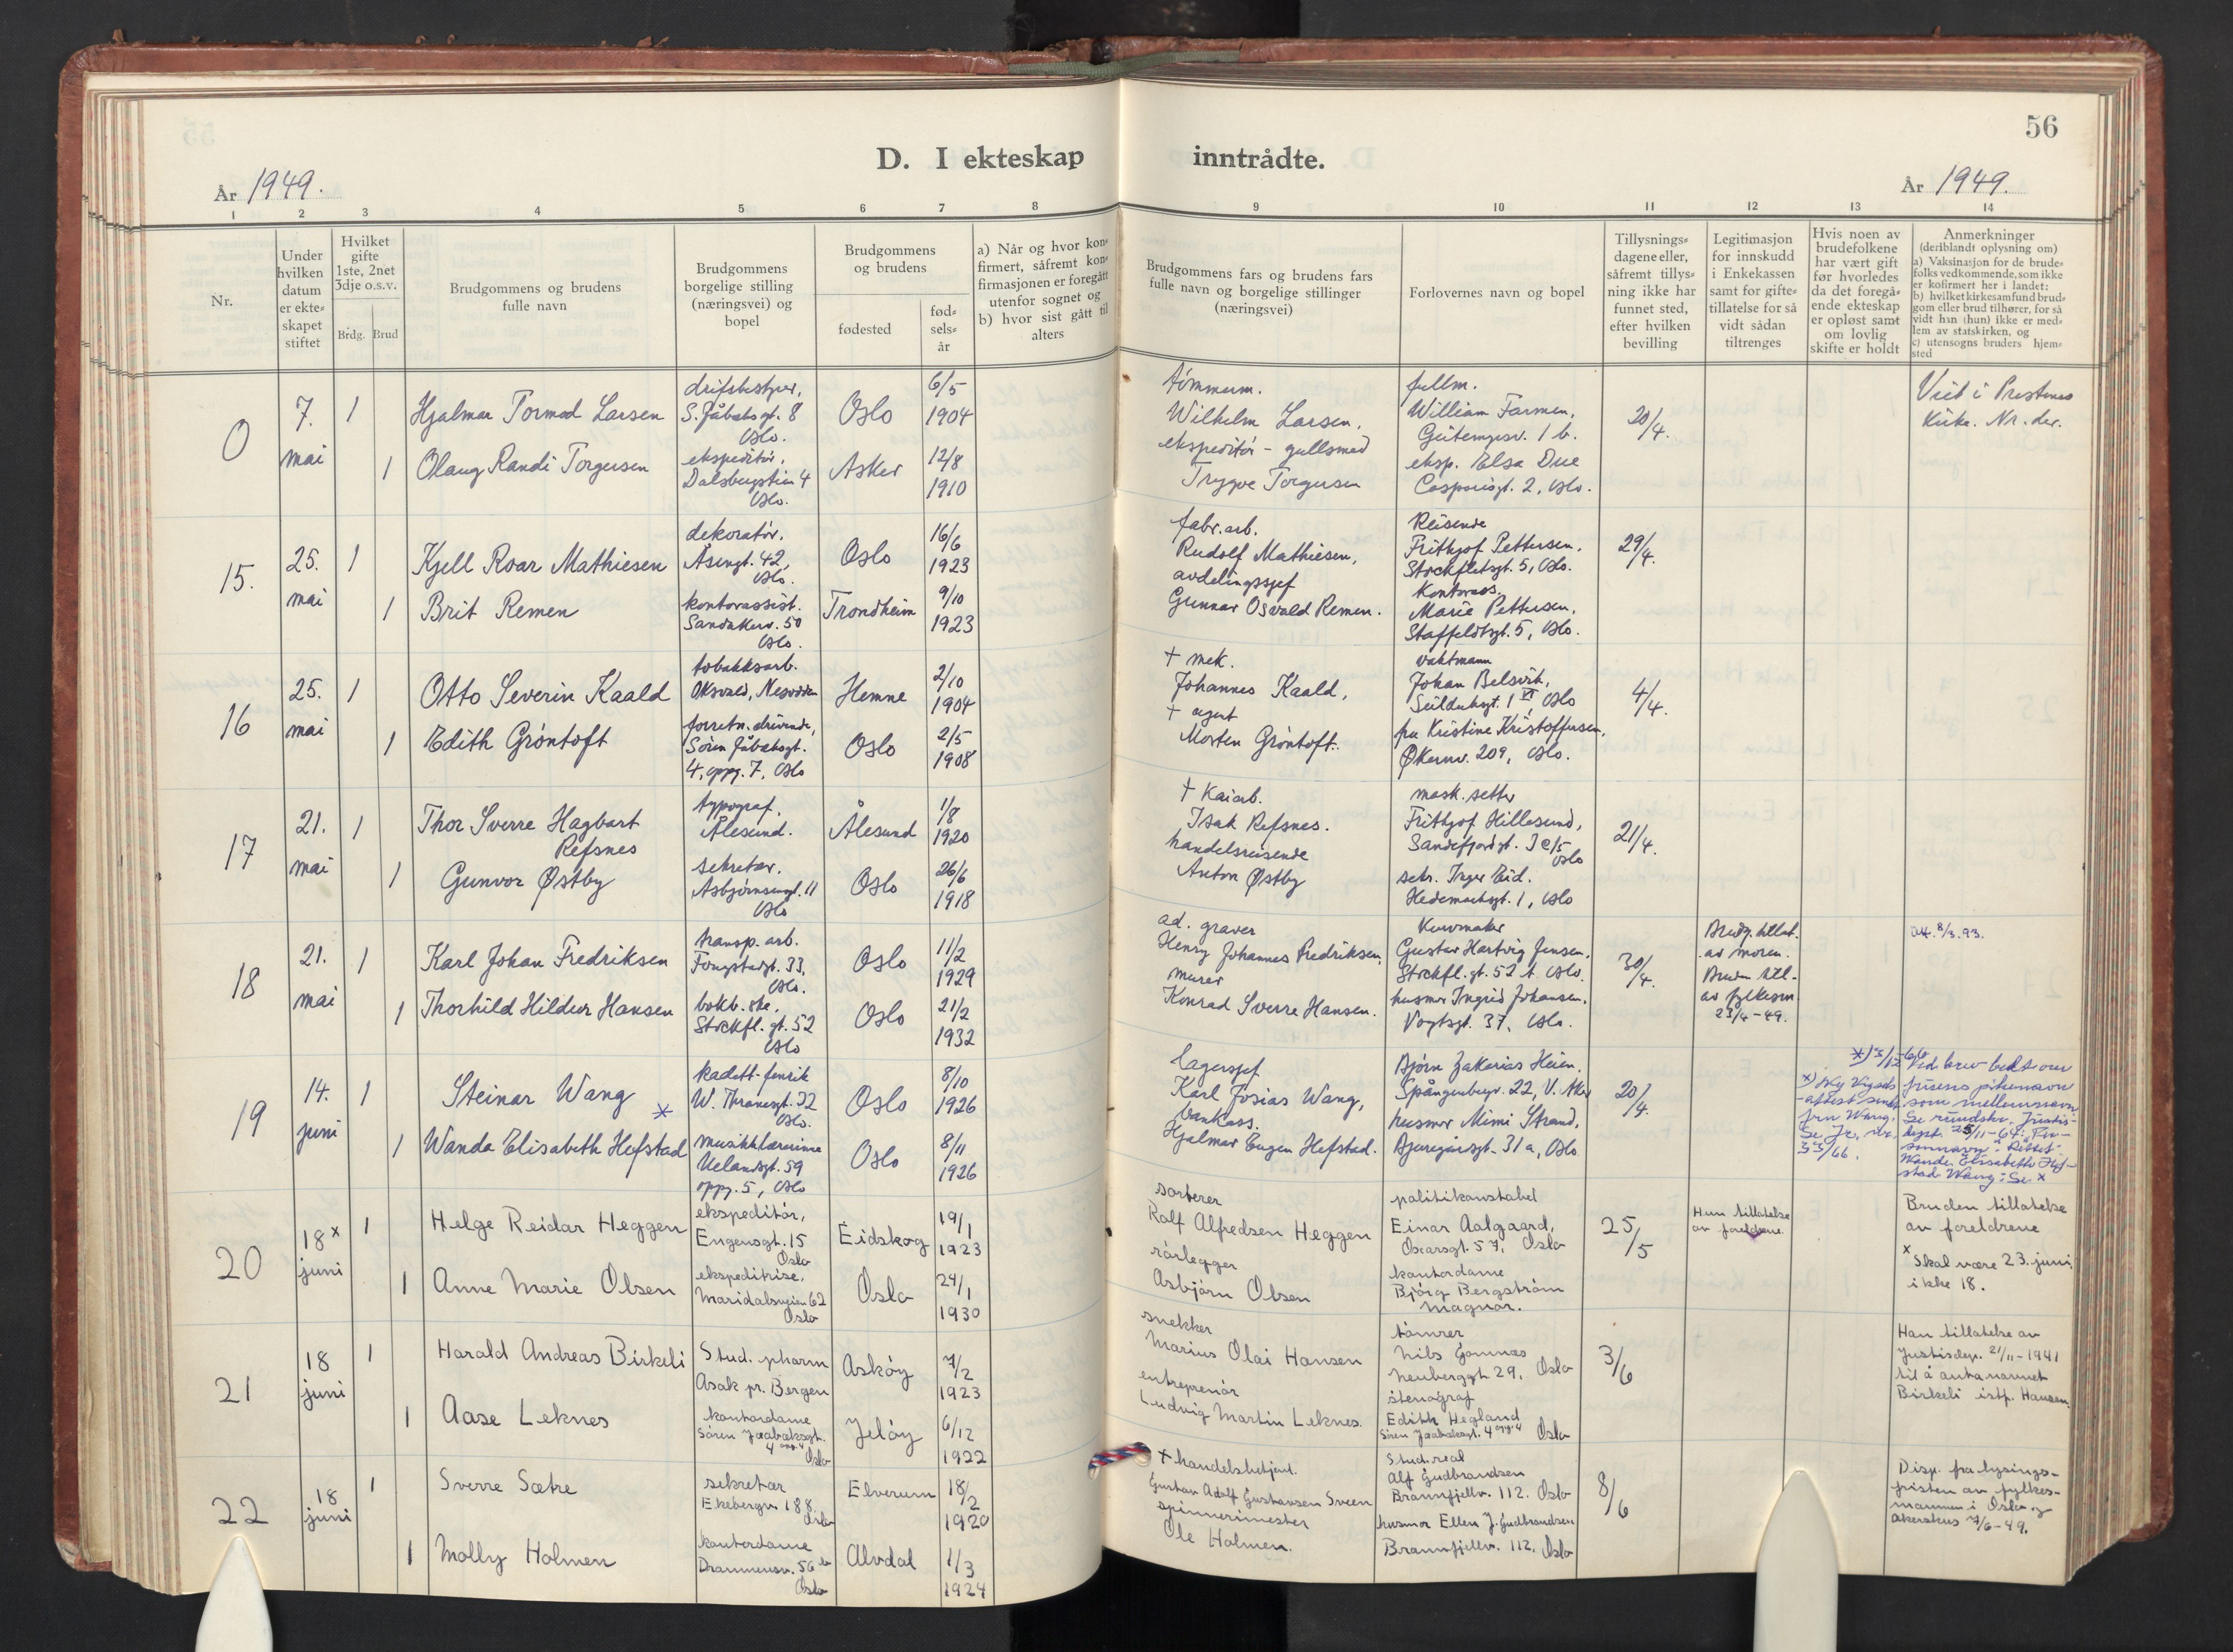 56
D. I ekteskap inntrådte.
År 1949.
År 1949.
1 2 3 4 5 6 7 8 9 10 11 12 13 14
Nr.
Under hvilken datum er ekte- skapet stiftet
Hvilket gifte 1ste, 2net 3dje o.s.v.
Brdg. Brud
Brudgommens og brudens fulle navn
Brudgommens borgelige stilling (næringsvei) og bopel
Brudgommens og brudens
fødested
fød- sels- år
a) Når og hvor kon- firmert, såfremt kon- firmasjonen er foregått utenfor sognet og b) hvor sist gått til alters
Brudgommens fars og brudens fars fulle navn og borgelige stillinger (næringsvei)
Forlovernes navn og bopel
Tillysnings- dagene eller, såfremt tillys- ning ikke har funnet sted, efter hvilken bevilling
Legitimasjon for innskudd i Enkekassen samt for gifte- tillatelse for så vidt sådan tiltrenges
Hvis noen av brudefolkene har vært gift før hvorledes da det foregå- ende ekteskap er opløst samt om lovlig skifte er holdt
Anmerkninger (deriblandt oplysning om) a) Vaksinasjon for de brude- folks vedkommende, som ikke er kofirmert her i landet: b) hvilket kirkesamfund brud- gom eller brud tilhører, for så vidt han (hun) ikke er med- lem av statskirken, og c) utensogns bruders hjem- sted
0
7. mai
1
Hjalmar Tormod Larsen
S. Jåbæksgt. 8
Oslo.
Oslo
6/5 1904
tømmerm.
Wilhelm Larsen.
fullm.
William Farmen,
20/4.
Kirke. Nr. der.
1
Olaug Randi Torgersen
ekspeditør,
Dalsbergstien 4
Oslo.
Asker
12/8 1910
ekspeditør - gullsmed
Trygve Torgersen
eksp. Elsa Due
Casparisgt. 2, Oslo.
15.
25. mai
1
Kjell Roar Mathiesen
dekoratør.
Åsengt. 42,
Oslo.
Oslo
16/6 1923
fabr. arb.
Rudolf Mathiesen,
Reisende
Frithjof Pettersen.
Stockfletsgt. 5, Oslo.
29/4.
1
Brit Remen
kontorassist.
Sandakerv. 50
Oslo.
Trondheim
9/10 1923
avdelingssjef
Gunnar Osvald Remen.
Kontorass.
Marie Pettersen.
Staffeldtsgt. 5, Oslo.
16
25. mai
1
Otto Severin Kaald
tobakksarb.
Oksvald, Nesodden
Hemne
2/10 1904
† mek.
Johannes Kaald,
vaktmann
Johan Belsvik,
Seilduksgt. 1 VI, Oslo
4/4.
1
Edith Grøntoft
forretn. drivende,
Søren Jåbæksgt.
4, oppg. 7, Oslo
Oslo
2/5 1908
† agent
Morten Grøntoft.
fru Kristine Kristoffersen,
Økernv. 209, Oslo.
17
21. mai
1
Thor Sverre Hagbart
Refsnes
typograf.
Ålesund.
Ålesund
1/8 1920
† Kaiarb.
Isak Refsnes.
mask. setter
Frithjof Hillesund,
Sandefjordgt. 3 e/5
Oslo
21/4.
1
Gunvor Østby
sekretær.
Asbjørnsensgt. 11
Oslo
Oslo
26/6 1918
handelsreisende
Anton Østby
sekr. Inger Eid.
Hedemarksgt. 1, Oslo
18
21. mai
1
Karl Johan Fredriksen
transp. arb.
Fougstadgt. 33,
Oslo.
Oslo
11/2 1929
ad. graver
Henry Johannes Fredriksen,
Kurvmaker
Gustav Hartvig Jensen,
Stockfl. gt. 52, Oslo.
30/4.
Brudg. tillat.
av moren.
8/3.93.
1
Thorhild Hildur Hansen
bokb. ske,
Stockfl. gt. 52
Oslo
Oslo
21/2 1932
murer
Konrad Sverre Hansen.
husmor Ingrid Johansen.
Vogtsgt. 37, Oslo.
Bruden till.
av fylkesm
23/4-49.
19
14. juni
1
Steinar Wang *
kadett-fenrik
W. Thranesgt. 32
Oslo.
Oslo
8/10 1926
lagersjef
Karl Josias Wang,
Bjørn Zakarias Heien.
Spångbergv. 22, V. Aker
20/4.
1
Wanda Elisabeth Hefstad
musikklærerinne
Uelandsgt. 59
oppg. 5, Oslo
Oslo
8/11 1926
bankass.
Hjalmar Eugen Hefstad.
husmor Mimi Strand,
Bjerregårdsgt. 31 a, Oslo
x) Ny Vigsels-
attest sendt
fru Wang.
Se Jr. nr.
33/66.
Ved brev bedt om
fruens pikenavn
som mellomnavn
Se rundskr. Justis-
dept. 25/11-64
Wanda Elisabeth Hef-
stad Wang: Se x
20
18x juni
1
Helge Reidar Heggen
ekspeditør,
Engensgt. 15
Oslo
Eidskog
19/1 1923
sorterer
Ralf Alfredsen Heggen
politikonstabel
Einar Aalgaard,
Oscarsgt. 57, Oslo
25/5
Hun tillatelse
av foreldrene.
Bruden tillatelse
av foreldrene
x Skal være 23. juni,
ikke 18.
1
Anne Marie Olsen
ekspeditrise,
Maridalsveien 62
Oslo
Oslo
24/1 1930
rørlegger
Asbjørn Olsen
kontordame
Bjørg Bergstrøm
Magnor.
21
18 juni
1
Harald Andreas Birkeli
Stud. pharm
Asak pr. Bergen
Askøy
7/2 1923
snekker
Marius Olai Hansen
tømrer
Nils Gomnæs
Neuberggt 29, Oslo
3/6
Han tillatelse av
Justisdep. 21/11-1941
til å anta navnet
Birkeli istf. Hansen.
1
Aase Leknes
kontordame
Søren Jaabæksgt.
4 opg. 4
Oslo
Jeløy
6/12 1922
entreprenør
Ludvig Martin Leknes.
stenograf
Edith Hegland
Søren Jaabæksgt. 4 opg. 4 Oslo
22
18 juni
1
Sverre Sætre
sekretær
Ekebergv. 188.
Oslo
Elverum
18/2 1920
† handelsbetjent.
Gustav Adolf Gustavsen Sveen
Stud. real
Alf Gudbrandsen
Brannfjellv. 112. Oslo
8/6
Disp. fra lysings-
fristen av fylkes-
mannen i Oslo og
Akershus 7/6-49.
1
Molly Holmen
kontordame
Drammensv. 56 b
Oslo
Alvdal
1/3 1924
spinnerimester
Ole Holmen.
husmor Ellen J. Gudbrandsen
Brannfjellv. 112. Oslo